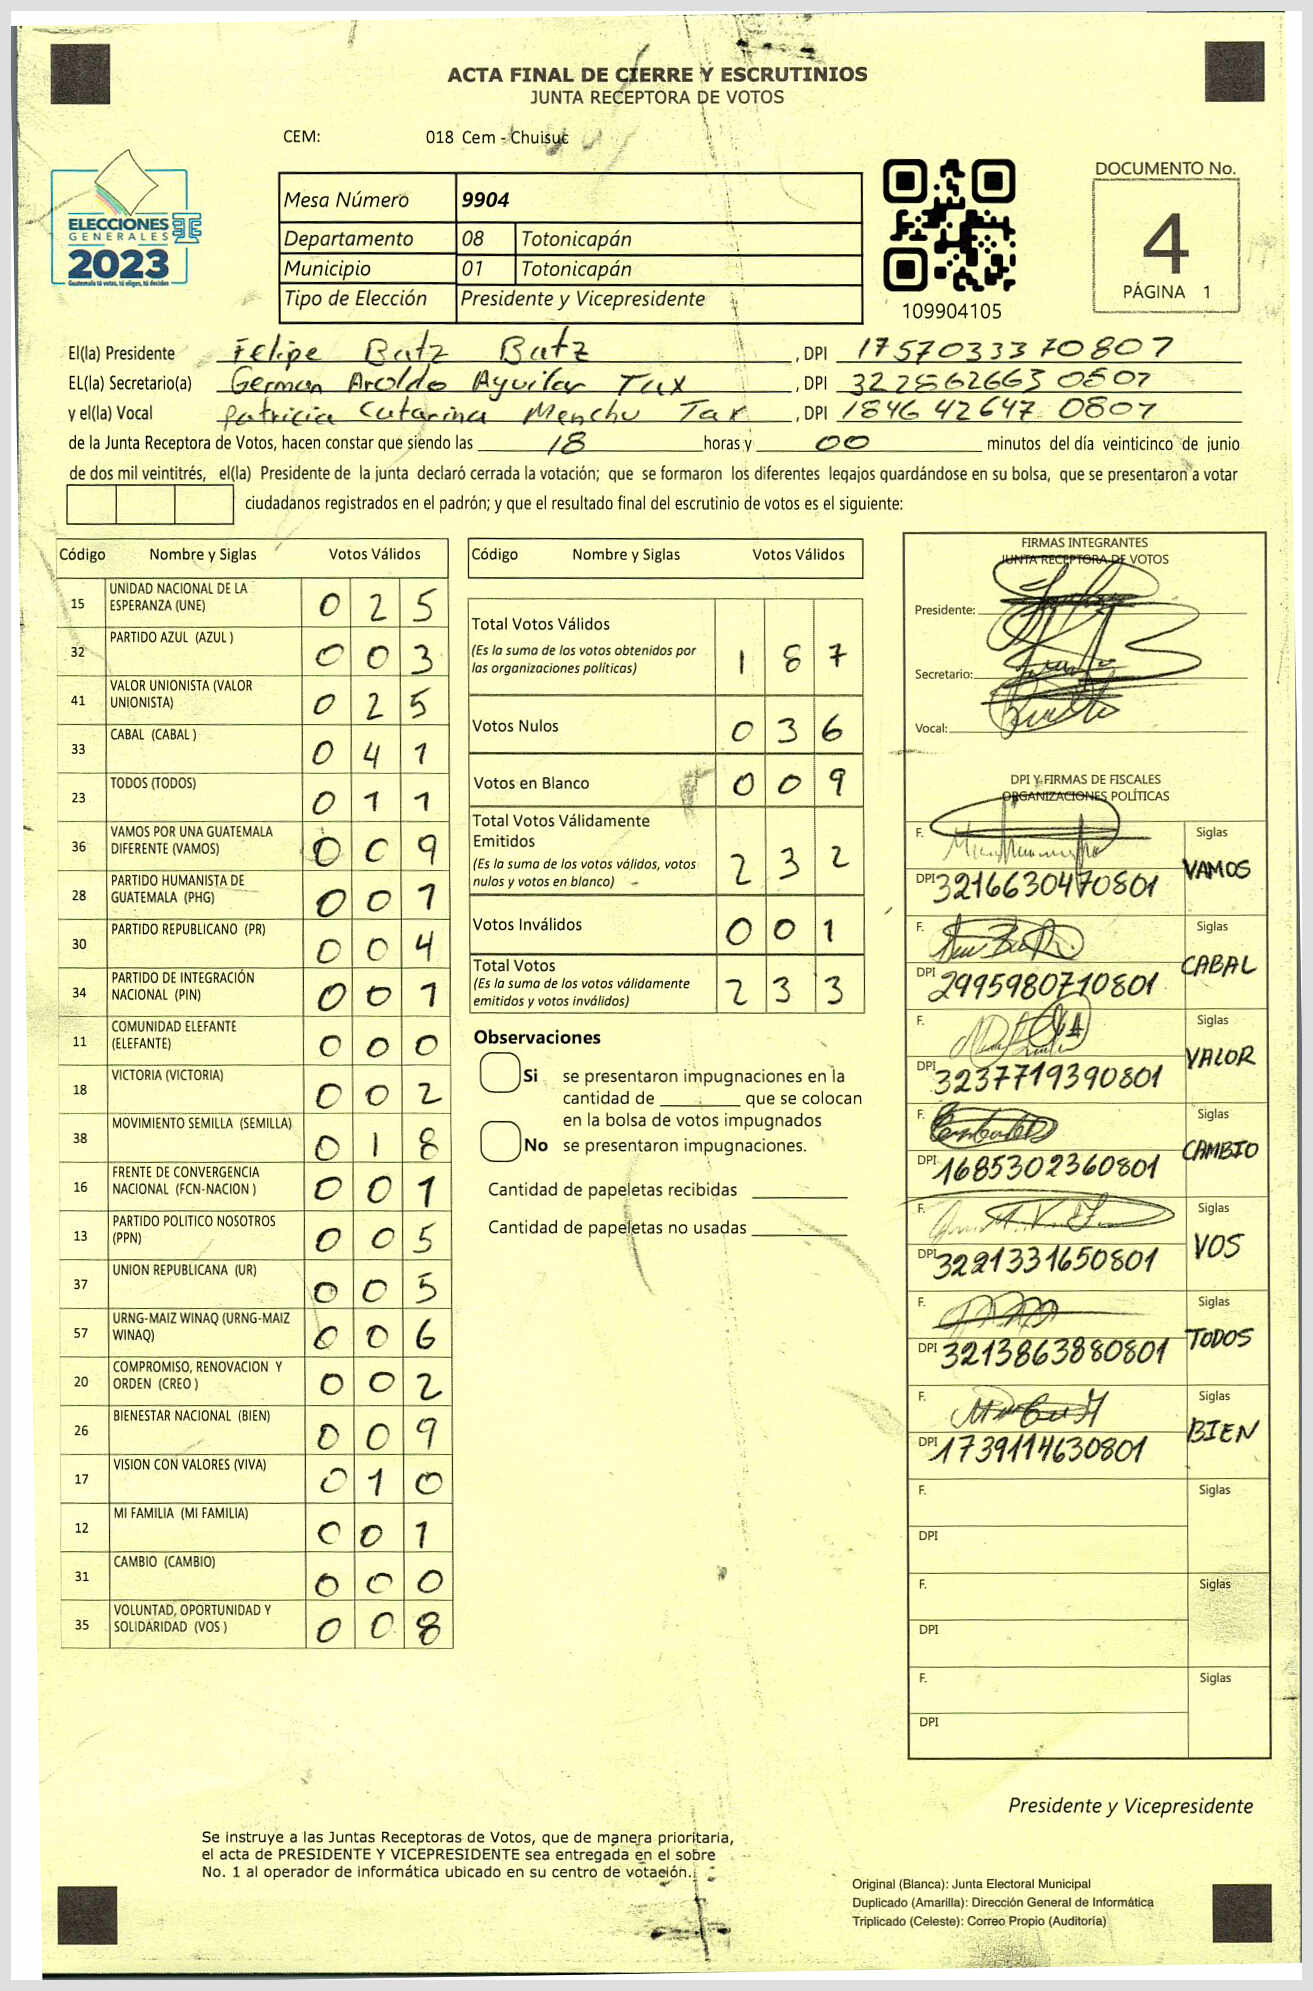 ACTA FINAL DE CIERRE Y ESCRUTINIOS
JUNTA RECEPTORA DE VOTOS
CEM: 018 Cem - Chuisuc
ELECCIONES
GENERALES
2023
Guatemala tú votas, tú eliges, tú decides
Mesa Número 9904
Departamento 08 Totonicapán
Municipio 01 Totonicapán
Tipo de Elección Presidente y Vicepresidente
109904105
DOCUMENTO No.
4
PÁGINA 1
El(la) Presidente Felipe Batz Batz, DPI 1757033370807
EL(la) Secretario(a) German Aroldo Aguilar Tax, DPI
y el(la) Vocal Patricia Catarina Menchu Tax, DPI 1846 42647 0801
de la Junta Receptora de Votos, hacen constar que siendo las 18 horas y 00 minutos del día veinticinco de junio
de dos mil veintitrés, el(la) Presidente de la junta declaró cerrada la votación; que se formaron los diferentes legajos quardándose en su bolsa, que se presentaron a votar
ciudadanos registrados en el padrón; y que el resultado final del escrutinio de votos es el siguiente:
Código Nombre y Siglas Votos Válidos
15 UNIDAD NACIONAL DE LA ESPERANZA (UNE) 0 2 5
32 PARTIDO AZUL (AZUL ) 0 0 3
41 VALOR UNIONISTA (VALOR UNIONISTA) 0 2 5
33 CABAL (CABAL ) 0 4 1
23 TODOS (TODOS) 0 1 1
36 VAMOS POR UNA GUATEMALA DIFERENTE (VAMOS) 0 0 9
28 PARTIDO HUMANISTA DE GUATEMALA (PHG) 0 0 1
30 PARTIDO REPUBLICANO (PR) 0 0 4
34 PARTIDO DE INTEGRACIÓN NACIONAL (PIN) 0 0 1
11 COMUNIDAD ELEFANTE (ELEFANTE) 0 0 0
18 VICTORIA (VICTORIA) 0 0 2
38 MOVIMIENTO SEMILLA (SEMILLA) 0 1 8
16 FRENTE DE CONVERGENCIA NACIONAL (FCN-NACION ) 0 0 1
13 PARTIDO POLITICO NOSOTROS (PPN) 0 0 5
37 UNION REPUBLICANA (UR) 0 0 5
57 URNG-MAIZ WINAQ (URNG-MAIZ WINAQ) 0 0 6
20 COMPROMISO, RENOVACION Y ORDEN (CREO ) 0 0 2
26 BIENESTAR NACIONAL (BIEN) 0 0 9
17 VISION CON VALORES (VIVA) 0 1 0
12 MI FAMILIA (MI FAMILIA) 0 0 1
31 CAMBIO (CAMBIO) 0 0 0
35 VOLUNTAD, OPORTUNIDAD Y SOLIDARIDAD (VOS ) 0 0 8
Código Nombre y Siglas Votos Válidos
Total Votos Válidos 1 8 7
(Es la suma de los votos obtenidos por
las organizaciones políticas)
Votos Nulos 0 3 6
Votos en Blanco 0 0 9
Total Votos Válidamente
Emitidos 2 3 2
(Es la suma de los votos válidos, votos
nulos y votos en blanco)
Votos Inválidos 0 0 1
Total Votos 2 3 3
(Es la suma de los votos válidamente
emitidos y votos inválidos)
Observaciones
Si se presentaron impugnaciones en la
cantidad de ________ que se colocan
en la bolsa de votos impugnados
No se presentaron impugnaciones.
Cantidad de papeletas recibidas
Cantidad de papeletas no usadas
FIRMAS INTEGRANTES
JUNTA RECEPTORA DE VOTOS
Presidente:
Secretario:
Vocal:
DPI Y FIRMAS DE FISCALES
ORGANIZACIONES POLÍTICAS
F. Siglas VAMOS
DPI 3216630470801
F. Siglas CABAL
DPI 2995980710801
F. Siglas VALOR
DPI 3237719390801
F. Siglas CAMBIO
DPI 1685302360801
F. Siglas VOS
DPI 3221331650801
F. Siglas TODOS
DPI 3213863880801
F. Siglas BIEN
DPI 1739114630801
F. Siglas
DPI
F. Siglas
DPI
F. Siglas
DPI
Presidente y Vicepresidente
Se instruye a las Juntas Receptoras de Votos, que de manera prioritaria,
el acta de PRESIDENTE Y VICEPRESIDENTE sea entregada en el sobre
No. 1 al operador de informática ubicado en su centro de votación.
Original (Blanca): Junta Electoral Municipal
Duplicado (Amarilla): Dirección General de Informática
Triplicado (Celeste): Correo Propio (Auditoría)